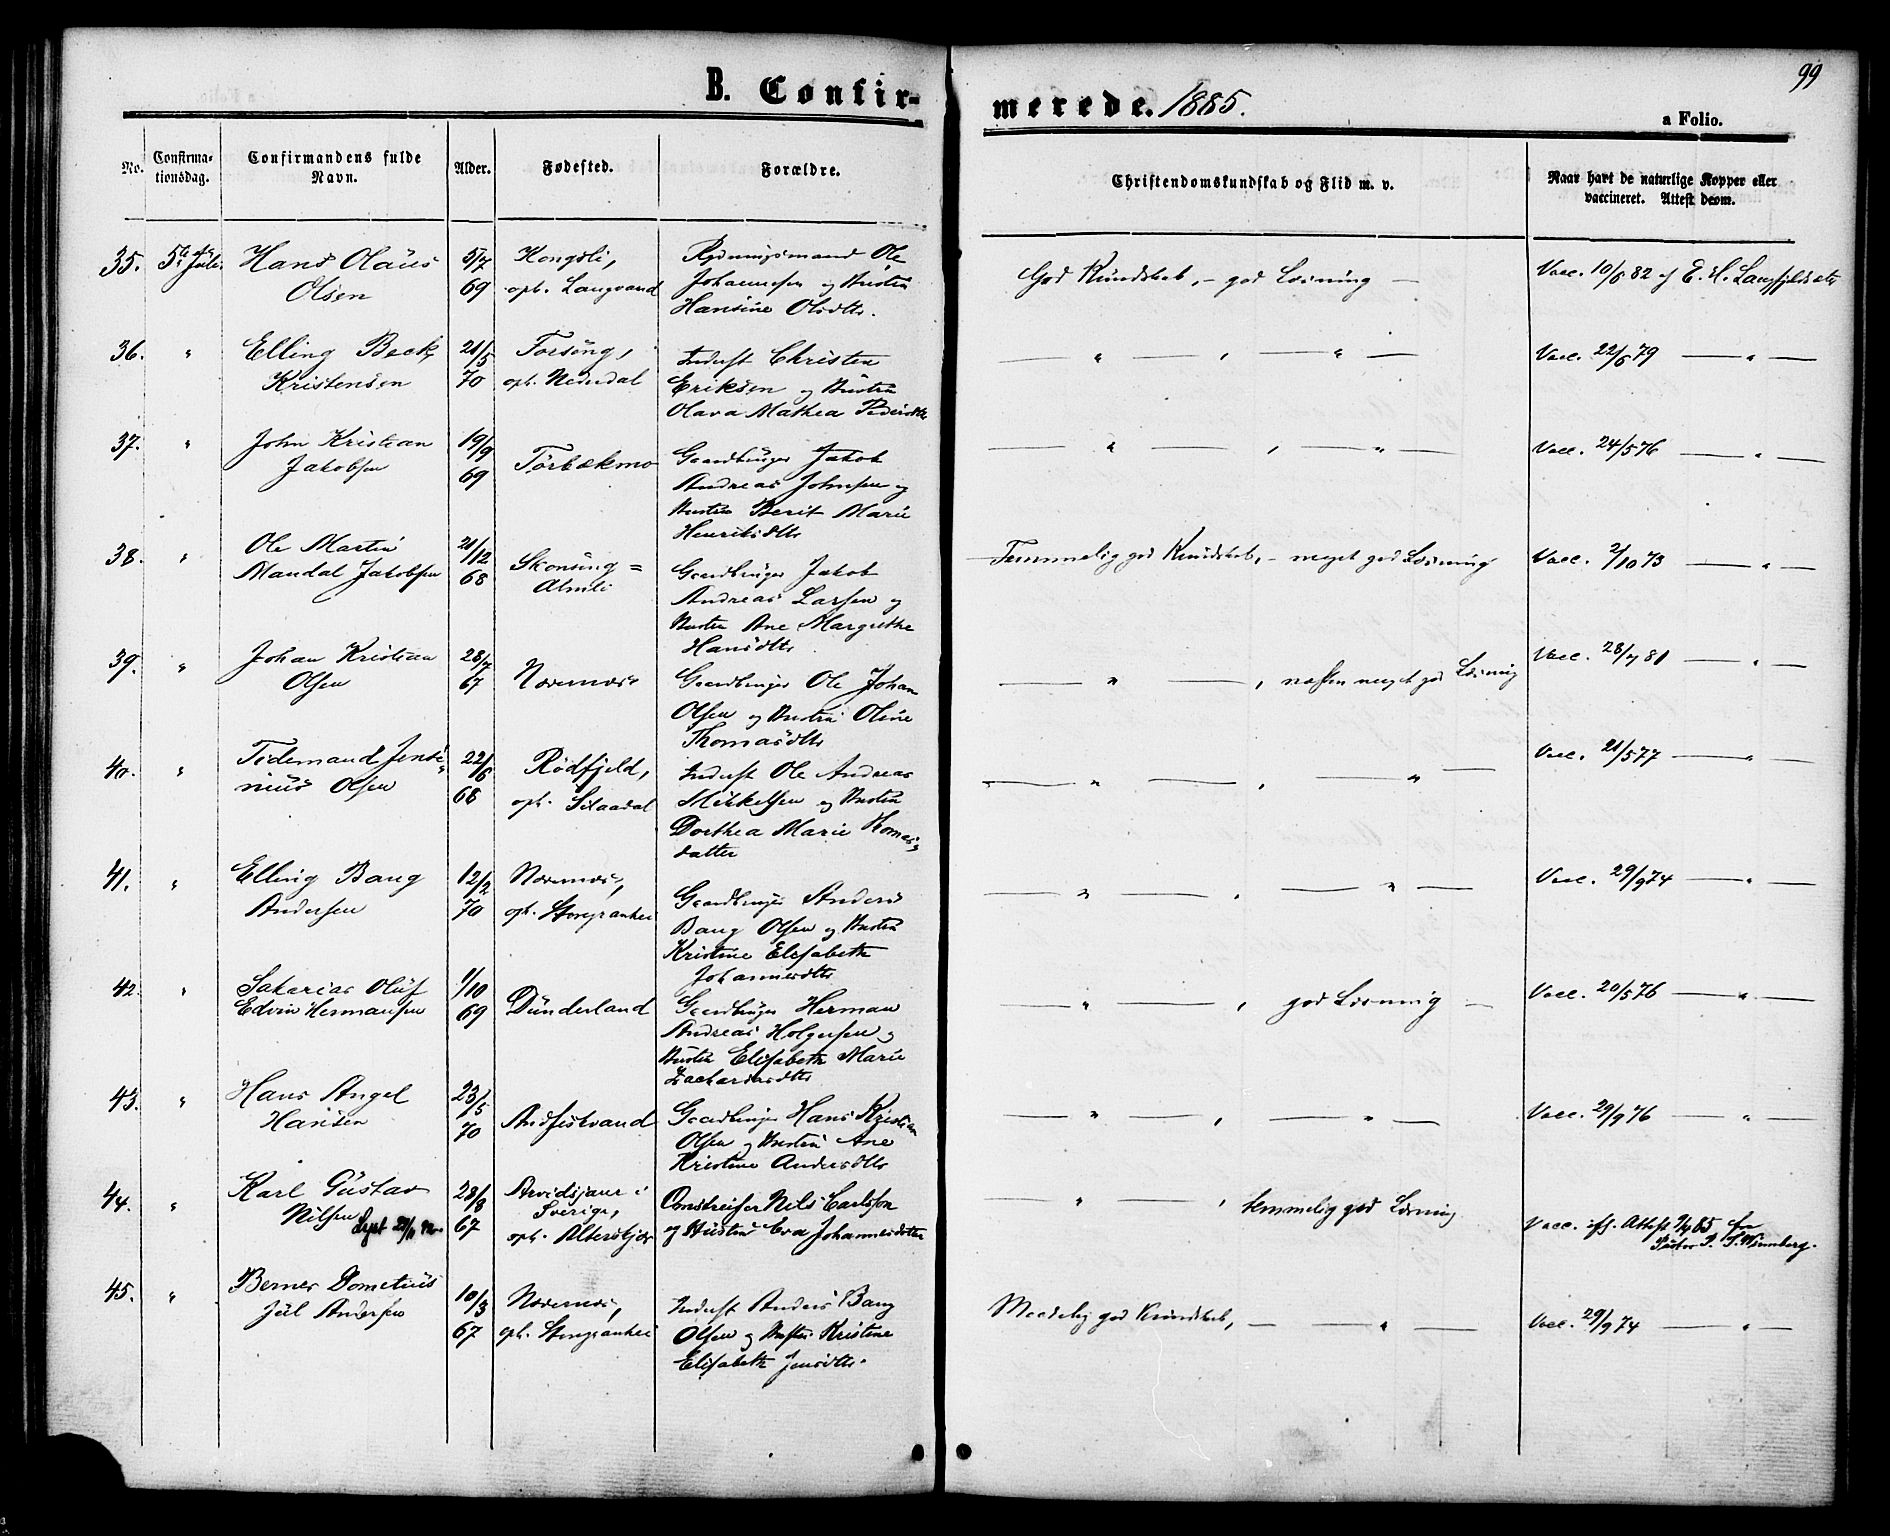 99
B. Confirmerede. 1885.
a Folio.
No.
Confirmationsdag.
Confirmandens fulde Navn.
Alder.
Fødested.
Forældre.
Christendomskundskab og Flid m. v.
Naar havt de naturlige Kopper eller vaccineret. Attest derom.
35. 5te Juli.
Hans Olaus
Olsen
5/7
69
Kongsli,
opt. Langvand
Rydningsmand Ole
Johannesen og Hustru
Hansine Olsdtr.
God Kundskab, – god Læsning —
Vacc. 10/6 82 af E. H. Langfjeldsæter
36. "
Elling Beck
Kristensen
21/5
70
opt. Nederdal
Inderst Christen
Eriksen og Hustru
Olava Mathea Pedersdtr
— " — , — " —
Vacc. 22/6 79 — " —
37. "
John Kristian
Jakobsen
19/9
69
Tørbækmo
Gaardbruger Jakob
Andreas Johnsen og
Hustru Berit Marie
Henriksdtr
— " — , — " —
Vacc. 24/5 76 — " —
38. "
Ole Martin
Mandal Jakobsen
21/12
68
Skonseng=
Almli
Gaardbruger Jakob
Andreas Larsen og
Hustru Ane Margrethe
Hansdtr.
Temmelig god Kundskab, – meget god Læsning
Vacc. 2/10 73 — " —
39. "
Johan Kristian
Olsen
28/7
67
Nævernæs
Gaardbruger Ole Johan
Olsen og Hustru Oline
Thomasdtr
— " — , næsten meget god Læsning
Vacc. 28/7 81 — " —
40. "
Tidemand Jensi=
nius Olsen
22/6
68
Rødfjeld,
Inderst Ole Andreas
Mikkelsen og Hustru
Dorthea Marie Thomas=
datter
— " — , — " —
Vacc. 21/5 77 — " —
41. "
Elling Bang
Andersen
12/2
70
Nævernæs,
opt. Storgranhei
Gaardbruger Anders
Bang Olsen og Hustru
Kristine Elisabeth
Johannesdtr
— " — , — " —
Vacc. 29/9 74 — " —
42. "
Sakarias Oluf
Edvin Hermansen
1/10
69
Dunderland
Gaardbruger Herman
Andreas Holgersen og
Hustru Elisabeth Marie
Zachariasdtr
— " — , god Læsning —
Vacc. 20/5 76 — " —
43. "
Hans Angel
Hansen
23/5
70
Andfiskvand
Gaardbruger Hans Kristian
Olsen og Hustru Ane
Kristine Andersdtr
— " — , — " —
Vacc. 29/9 76 — " —
44. "
Karl Gustav
Nilsen
28/8
67
Arvidsjaur i
Sverige,
Omstreifer Nils Carlsson
og Hustru Eva Johannesdatter
" — , temmelig god Læsning
Vacc. ifl. Attest 9/4 85 fra
Pastor
45. "
Berner Dometius
Juel Andersen
10/3
67
Nævernæs,
opt. Storgranhei
Inderst Anders Bang
Olsen og Hustru Kristine
Elisabeth Jensdtr.
Maadelig god Kundskab, — " —
Vacc. 29/9 74 — " —